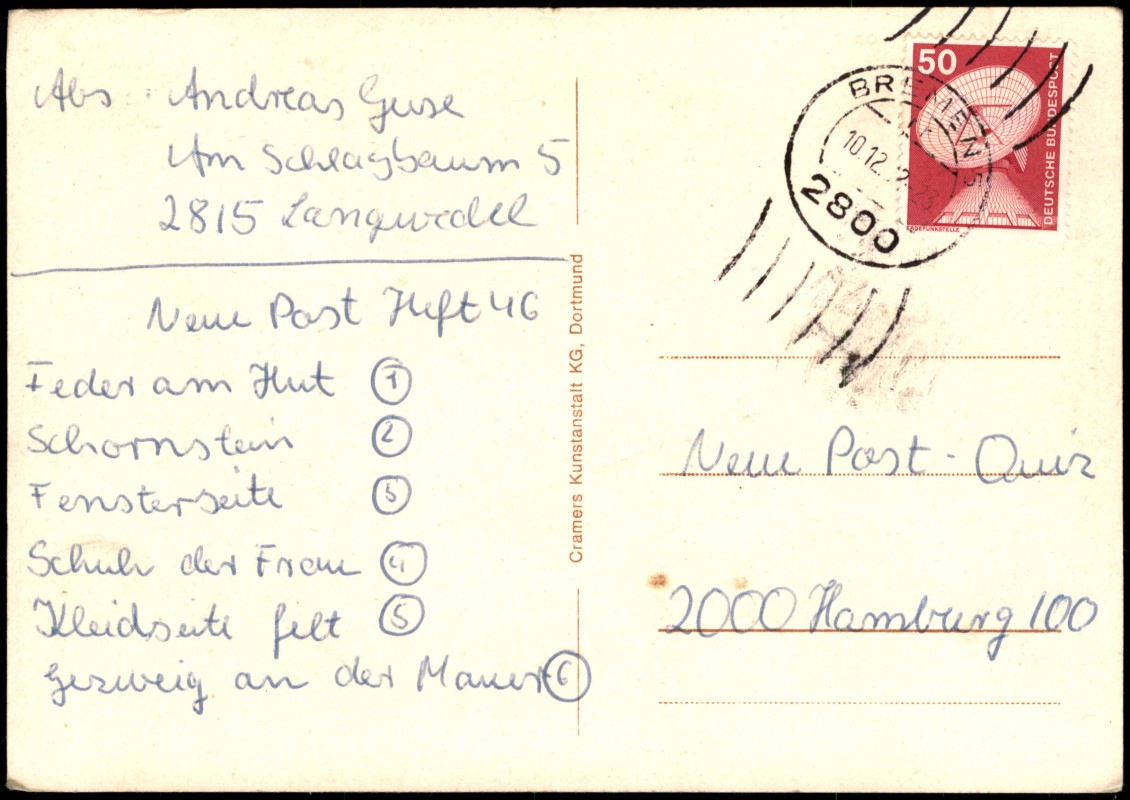 Abs. Andreas Guse
Am Schlagbaum 5
2815 Langwedel
Neue Post Heft 46
Feder am Hut 1
Schornstein 2
Fensterseite 3
Schuh der Frau 4
Kleidseite felt 5
Gezweig an der Mauer 6
Cramers Kunstanstalt KG, Dortmund
50
DEUTSCHE BUNDESPOST
ERDEFUNKSTELLE
BREMEN 5
10.12.
2800
Neue Post - Quiz
2000 Hamburg 100